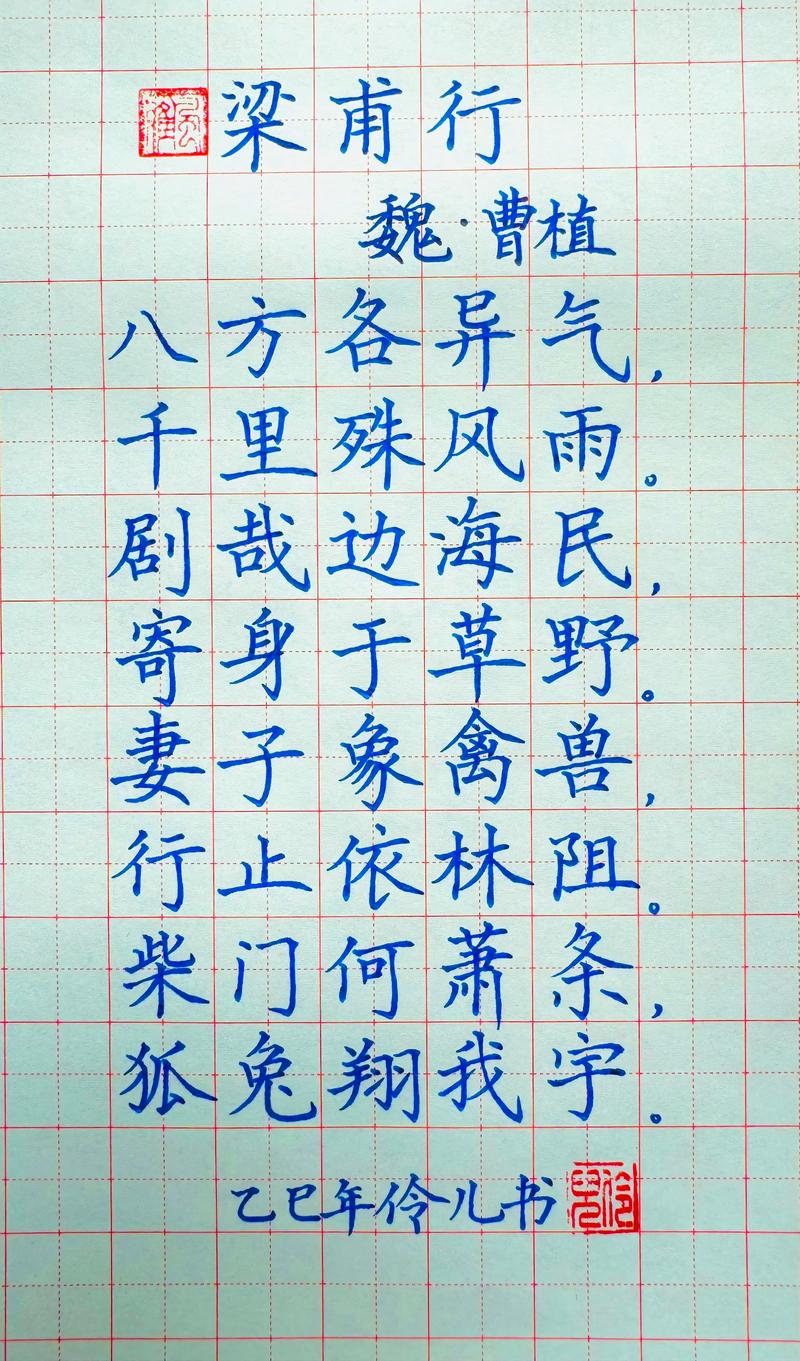 梁甫行
魏·曹植
八方各异气，
千里殊风雨。
剧哉边海民，
寄身于草野。
妻子象禽兽，
行止依林阻。
柴门何萧条，
狐兔翔我宇。
乙巳年伶儿书